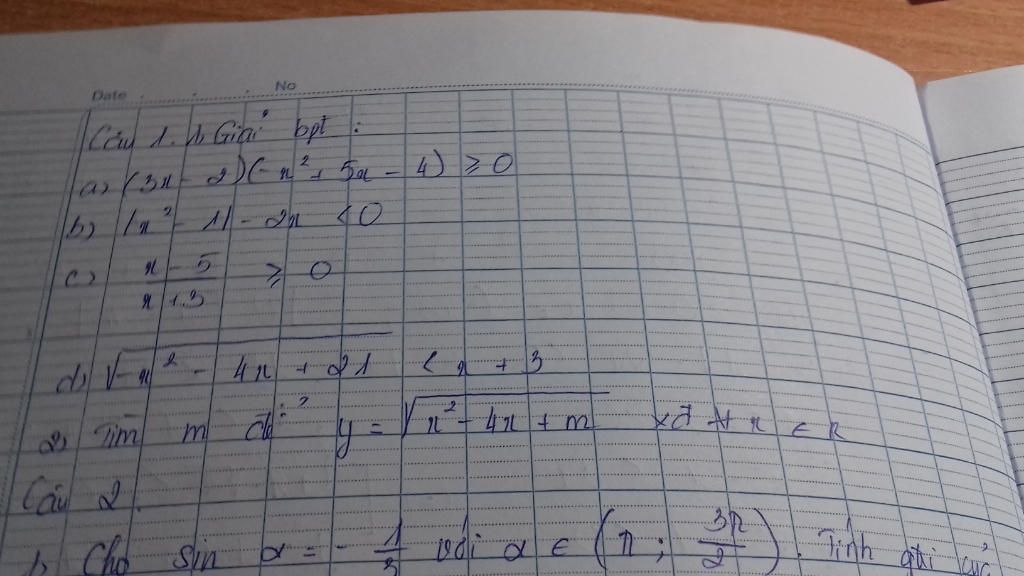 Date . . . No
Câu 1. 1, Giải bpt :
a) (3x - 2)(-x² + 5x - 4) ≥ 0
b) |x² - 1| - 2x < 0
c) \frac{x - 5}{x + 3} ≥ 0
d) √(-x² - 4x + 21) < x + 3
2) Tìm m để y = √(x² - 4x + m) xđ ∀ x ∈ R
Câu 2.
1, Cho sin α = - \frac{1}{3} với α ∈ (π ; \frac{3π}{2}). Tính